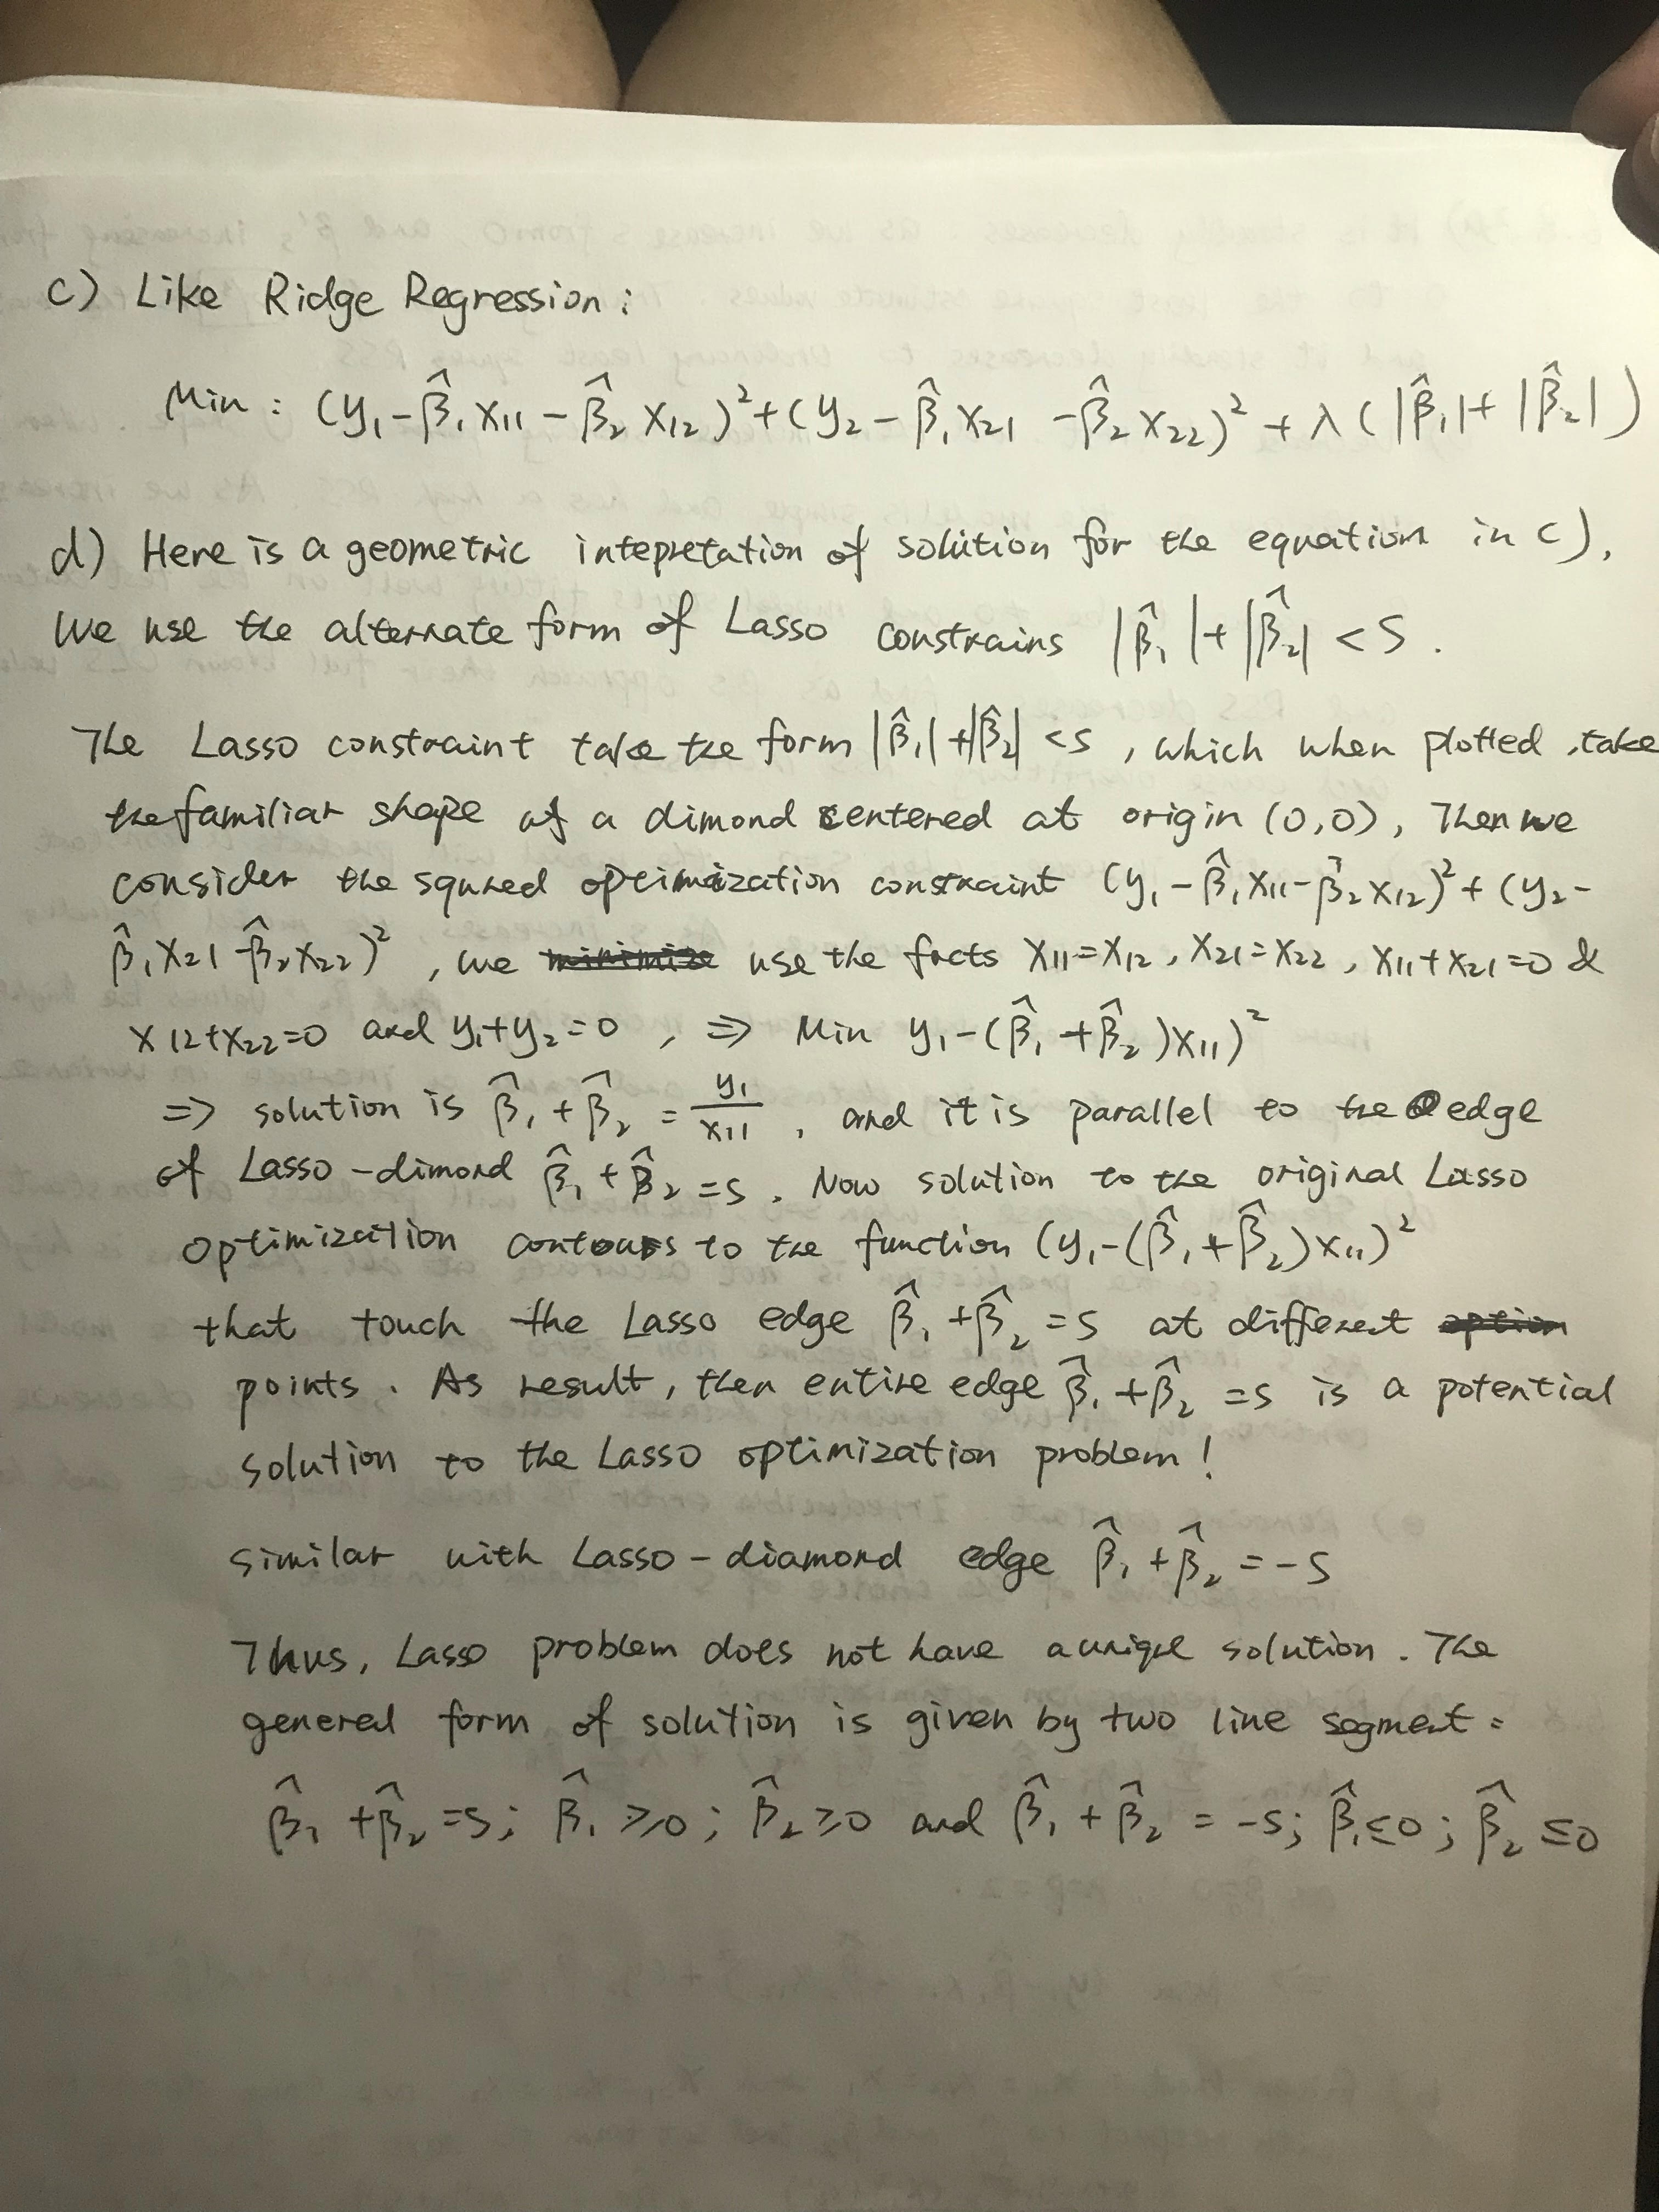 c) Like Ridge Regression:
Min : (y₁-β̂₁x₁₁-β̂₂x₁₂)²+(y₂-β̂₁x₂₁-β̂₂x₂₂)²+λ(|β̂₁|+|β̂₂|)
d) Here is a geometric intepretation of solution for the equation in c),
We use the alternate form of Lasso constrains |β̂₁|+|β̂₂|<s.
The Lasso constraint take the form |β̂₁|+|β̂₂|<s, which when plotted, take
the familiar shape of a dimond centered at origin (0,0), Then we
consider the squred optimization constraint (y₁-β̂₁x₁₁-β̂₂x₁₂)²+(y₂-
β̂₁x₂₁-β̂₂x₂₂)², we minimize use the facts x₁₁=x₁₂, x₂₁=x₂₂, x₁₁+x₂₁=0 &
x₁₂+x₂₂=0 and y₁+y₂=0, ⇒ Min y₁-(β̂₁+β̂₂)x₁₁)²
⇒ solution is β̂₁+β̂₂ = y₁/x₁₁, and it is parallel to the edge
of Lasso-dimond β̂₁+β̂₂=s. Now solution to the original Lasso
optimization contours to the function (y₁-(β̂₁+β̂₂)x₁₁)²
that touch the Lasso edge β̂₁+β̂₂=s at different option
points. As result, then entire edge β̂₁+β̂₂=s is a potential
solution to the Lasso optimization problem!
similar with Lasso-diamond edge β̂₁+β̂₂=-s
Thus, Lasso problem does not have a uniqe solution. The
general form of solution is given by two line segment:
β̂₁+β̂₂=s; β̂₁≥0; β̂₂≥0 and β̂₁+β̂₂=-s; β̂₁≤0; β̂₂≤0